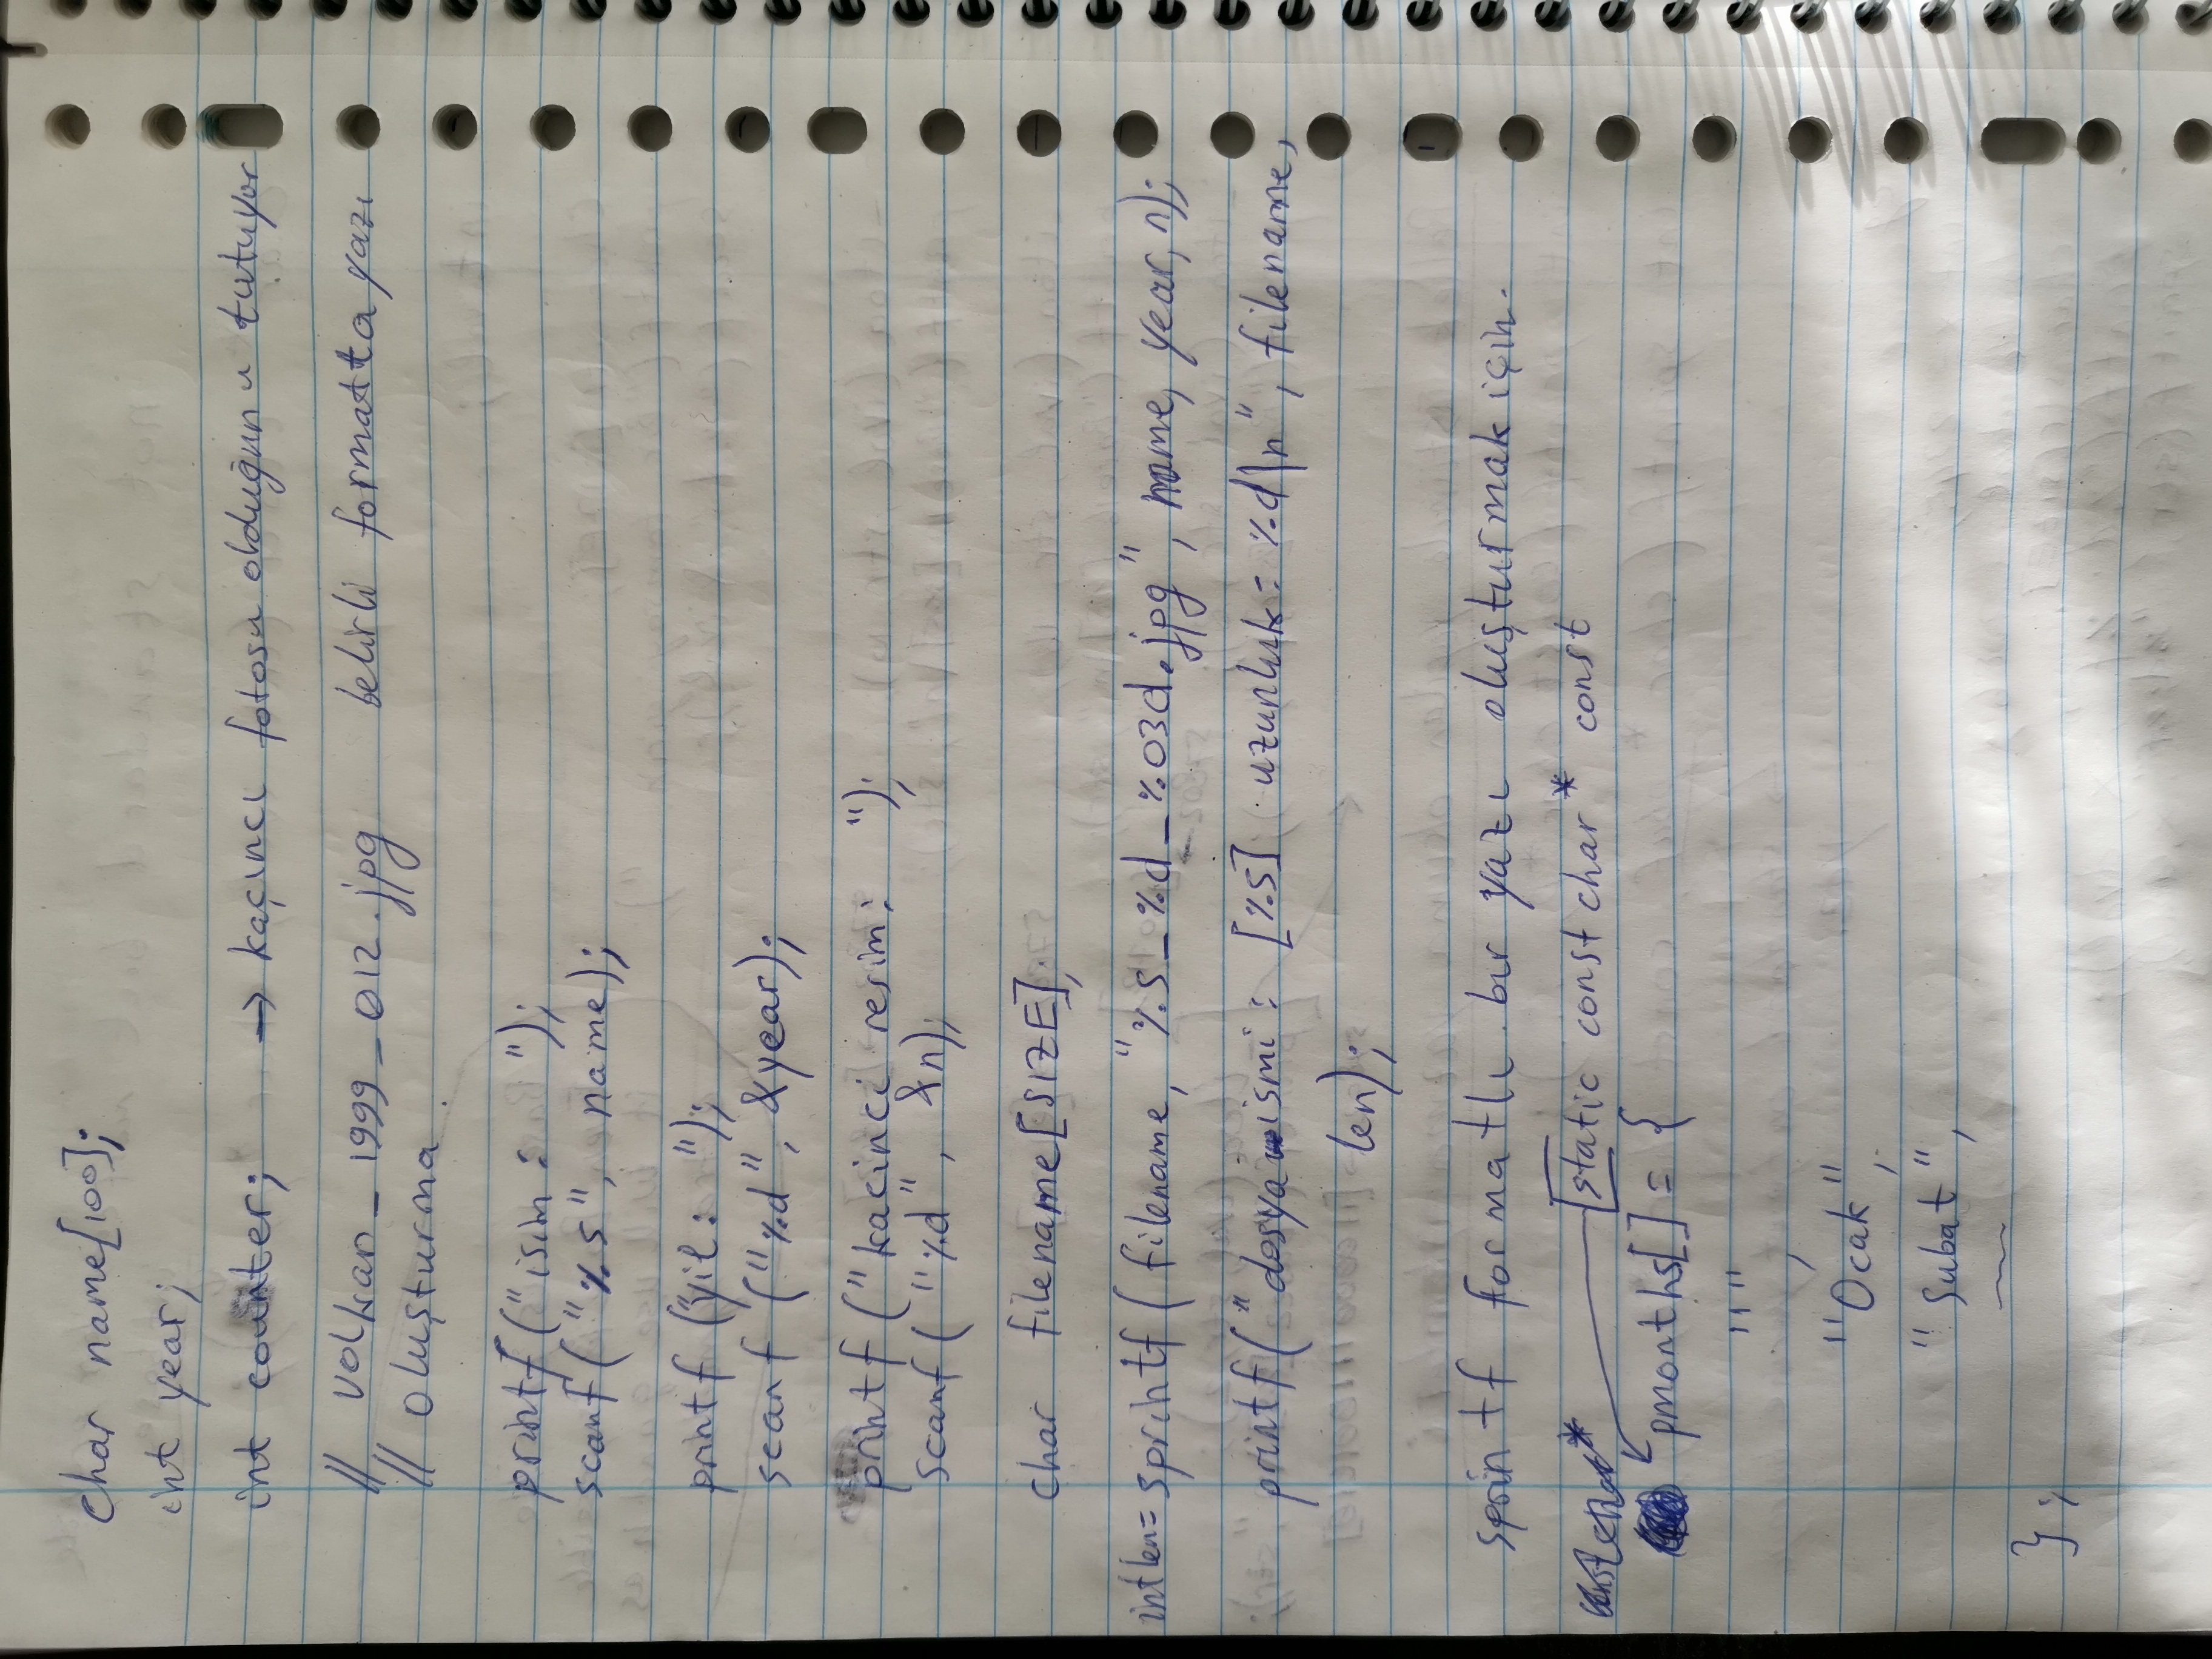 char name[100];
int year;
int counter; → kaçıncı fotosu olduğunu tutuyor
// volkan_1999_012.jpg belirli formatta yazı
// oluşturma.
printf("isim : ");
scanf("%s", name);
printf("yil: ");
scanf("%d", &year);
printf("kacinci resim: ");
scanf("%d", &n);
char filename[SIZE];
int len = sprintf(filename, "%s_%d_%03d.jpg", name, year, n);
printf("dosya ismi: [%s] uzunluk = %d\n", filename,
len);
sprintf formatlı bir yazı oluşturmak için.
static const char* const
pmonths[] = {
"",
"Ocak",
"Subat",
};